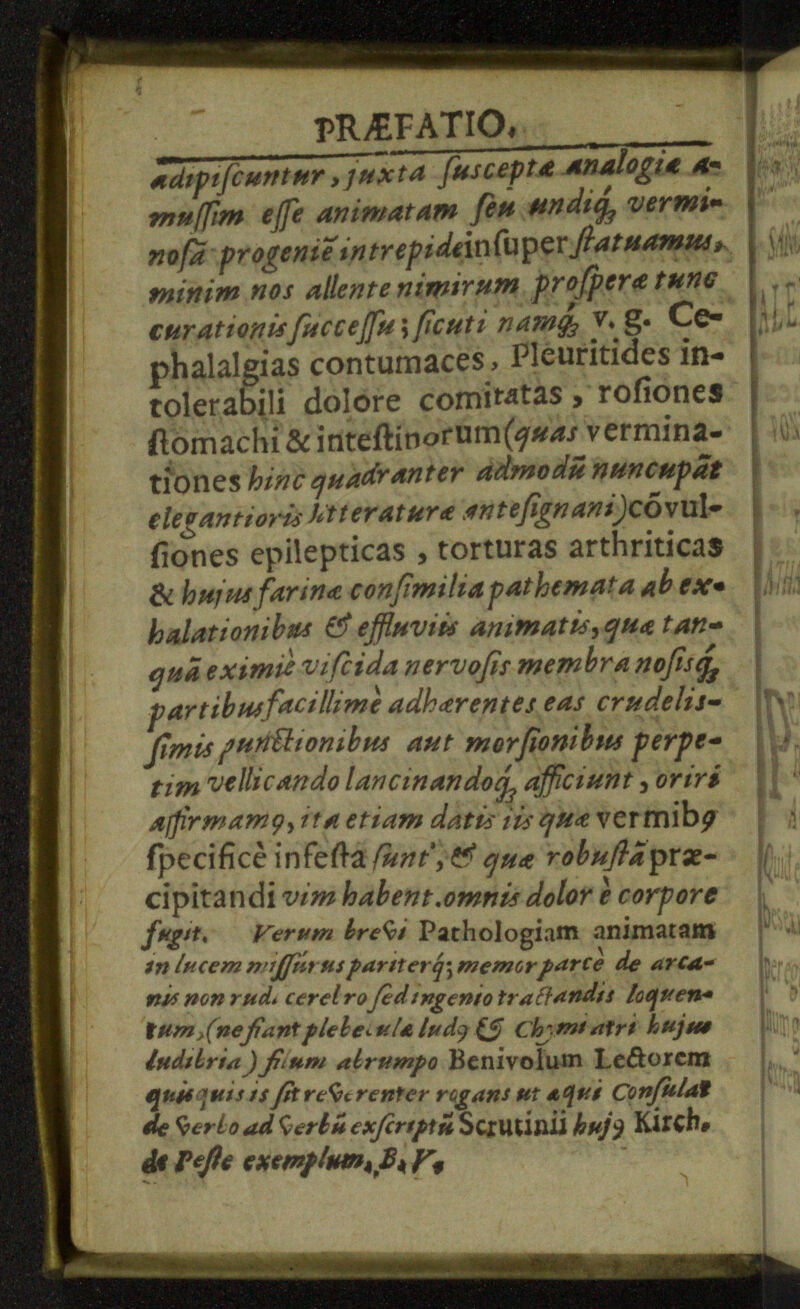 PRÆFATIO.
adipiſcuntur, juxta ſuſceptæ analogiæ a-
muſſim eſſe animatam ſeu undiq; vermi-
noſã progeniē intrepidè inſuper ſtatuamus,
minim nos allente nimirum proſperæ tunc
curationis ſucceſſu; ſicuti namq; v. g. Ce-
phalalgias contumaces, Pleuritides in-
tolerabili dolore comitatas, roſiones
ſtomachi & inteſtinorum (quas vermina-
tiones hinc quadranter admodū nuncupāt
elegantioris litteraturæ anteſignani) cōvul-
ſiones epilepticas, torturas arthriticas
& hujus farinæ conſimilia pathemata ab ex-
halationibus & effluviis animatis, quæ tan-
quã eximiè viſcida nervoſis membranoſisq;
partibus facillimè adhærentes eas crudeliſ-
ſimis punctionibus aut morſionibus perpe-
tim vellicando lancinandoq; afficiunt, oriri
affirmamꝰ, ita etiam datis iis quæ vermibꝰ
ſpecificè infeſta ſunt, & quæ robuſtã præ-
cipitandi vim habent. omnis dolor è corpore
fugit. Verum brevi Pathologiam animatam
in lucem miſſurus pariterq; memor parcè de arca-
nis non rudi cerebro ſed ingenio tractandis loquen-
tum, (ne fiant plebeculæ ludꝰ & Chymiatri hujus
ludibria) filum abrumpo Benivolum Lectorem
quisquis is ſit reverenter rogans ut æqui conſulat
de verbo ad verbū exſcriptū Scrutinii hujꝰ Kirch.
de Peſte exemplum, B. V.